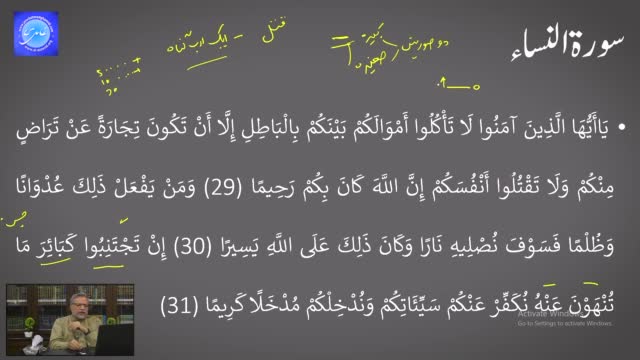 سورة النساء
قتل – ایک ارب گناہ
دو صورتیں
کبیرہ
صغیرہ
• يَاأَيُّهَا الَّذِينَ آمَنُوا لَا تَأْكُلُوا أَمْوَالَكُمْ بَيْنَكُمْ بِالْبَاطِلِ إِلَّا أَنْ تَكُونَ تِجَارَةً عَنْ تَرَاضٍ
مِنْكُمْ وَلَا تَقْتُلُوا أَنْفُسَكُمْ إِنَّ اللَّهَ كَانَ بِكُمْ رَحِيمًا (29) وَمَنْ يَفْعَلْ ذَلِكَ عُدْوَانًا
وَظُلْمًا فَسَوْفَ نُصْلِيهِ نَارًا وَكَانَ ذَلِكَ عَلَى اللَّهِ يَسِيرًا (30) إِنْ تَجْتَنِبُوا كَبَائِرَ مَا
تُنْهَوْنَ عَنْهُ نُكَفِّرْ عَنْكُمْ سَيِّئَاتِكُمْ وَنُدْخِلْكُمْ مُدْخَلًا كَرِيمًا (31)
Activate Windows
Go to Settings to activate Windows.